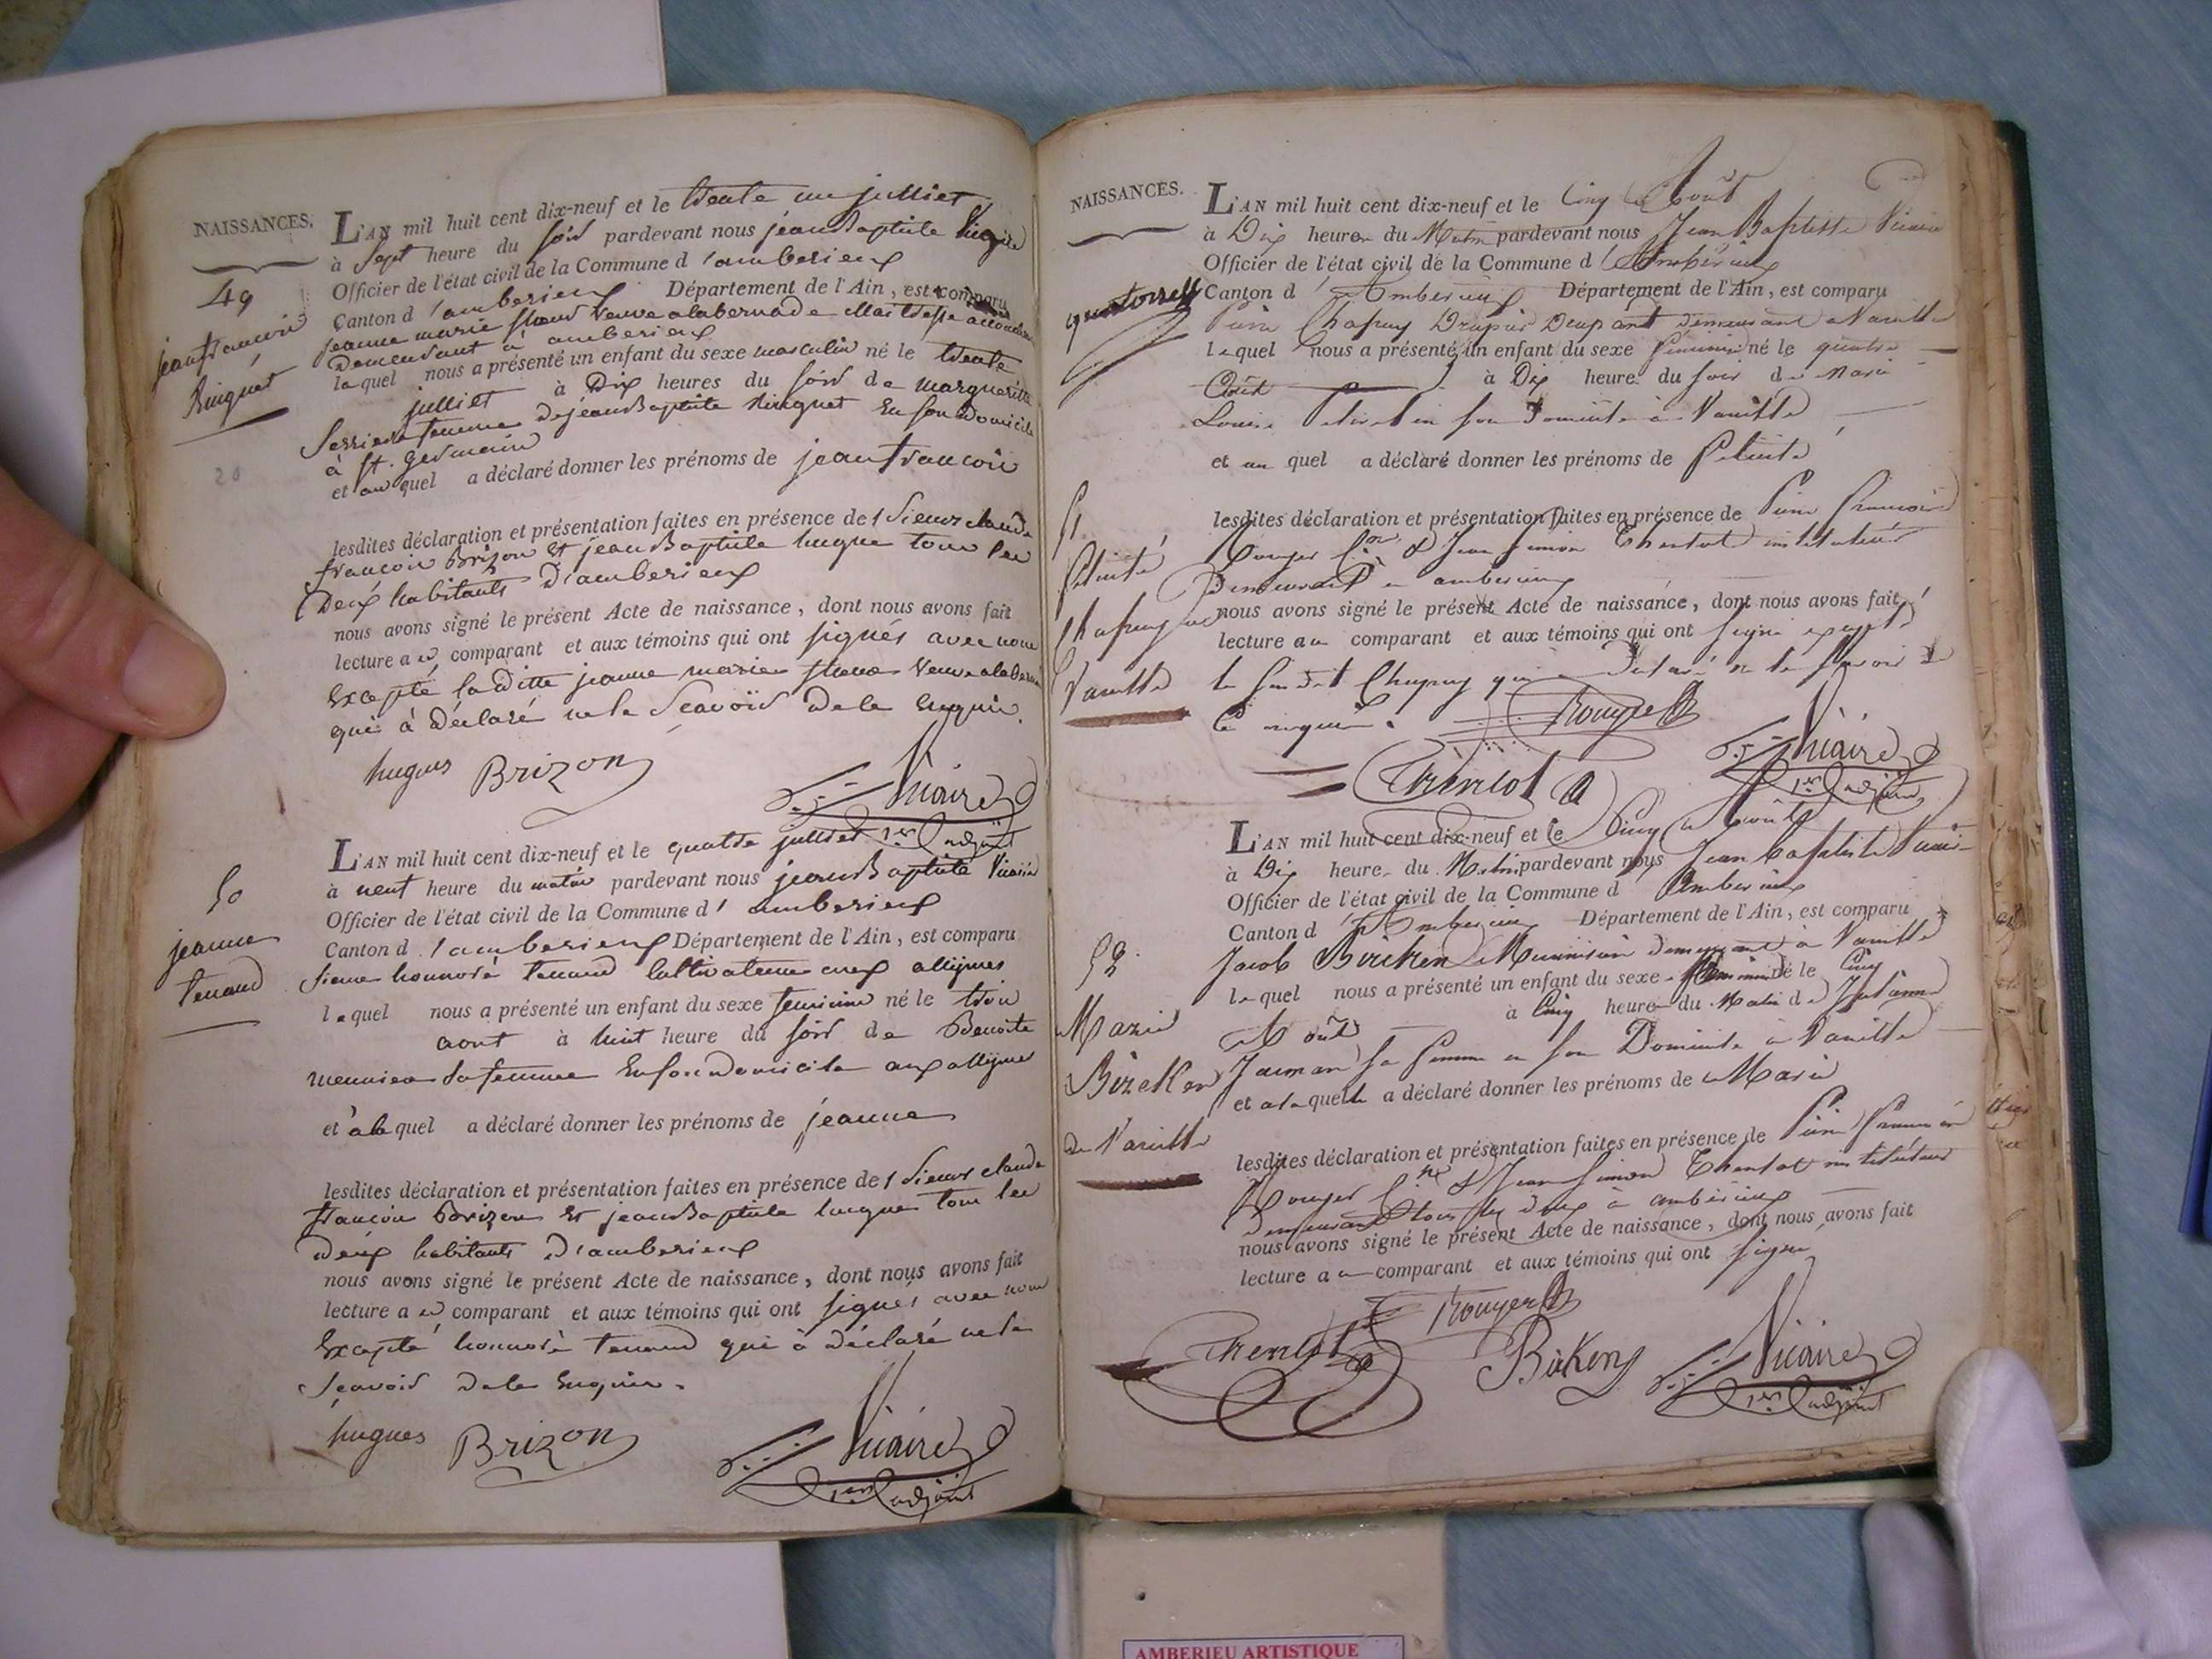 NAISSANCES.
49
jean francois
Ruiguet
20
L'AN mil huit cent dix-neuf et le trente un julliet
à Sept heure du soir pardevant nous jean Baptiste Vicaire
Officier de l'état civil de la Commune d'amberieux
Canton d'amberieux Département de l'Ain, est comparu
jeanne marie veuve alabernade
Demeurant à amberieux
laquel nous a présenté un enfant du sexe masculin né le trente
julliet à Dix heures du soir de margueritte
femme de jean Baptiste Ruiguet en son Domicile
à St. Germain
et au quel a déclaré donner les prénoms de jean francois
lesdites déclaration et présentation faites en présence de Sieurs claude
francois Brizon et jean Baptiste hugue tous les
Deux habitants D'amberieux
nous avons signé le présent Acte de naissance, dont nous avons fait
lecture a comparant et aux témoins qui ont signés avec nous
Excepté laditte jeanne marie veuve
qui à Déclaré ne le Scavoir De le Enquis.
hugues Brizon Vicaire
1er adjoint
50
jeanne
tenand
L'AN mil huit cent dix-neuf et le quatre julliet
à neuf heure du matin pardevant nous jean Baptiste Vicaire
Officier de l'état civil de la Commune d'amberieux
Canton d'amberieux Département de l'Ain, est comparu
Sieur honnoré tenand Cultivateur aux allymes
lequel nous a présenté un enfant du sexe feminin né le trois
aout à huit heure du soir de Benoite
meunier sa femme En son Domicile aux allymes
et à la quel a déclaré donner les prénoms de jeanne
lesdites déclaration et présentation faites en présence de Sieurs claude
francois Brizon et jean Baptiste hugues tous les
deux habitants D'amberieux
nous avons signé le présent Acte de naissance, dont nous avons fait
lecture a comparant et aux témoins qui ont signés avec nous
Excepté honnoré tenand qui à déclaré ne le
Scavoir De le Enquis.
hugues Brizon Vicaire
1er adjoint
NAISSANCES.
51
felicité
Chapuy
Vareille
L'AN mil huit cent dix-neuf et le Cinq Août
à Dix heures du Matin pardevant nous Jean Baptiste Vicaire
Officier de l'état civil de la Commune d'Amberieux
Canton d'Amberieux Département de l'Ain, est comparu
Pierre Chapuy demeurant a Vareille
lequel nous a présenté un enfant du sexe feminin né le quatre
Août à Dix heure du soir de Marie
Louise en son Domicile à Vareille
et au quel a déclaré donner les prénoms de Felicité
lesdites déclaration et présentation faites en présence de Pierre francois
Rouyer & Jean Simon Thentot instituteur
Demeurant a amberieux
nous avons signé le présent Acte de naissance, dont nous avons fait
lecture au comparant et aux témoins qui ont signé excepté
le susdit Chapuy qui a Declaré ne le savoir de
ce requis.
Rouyer
Thentot Vicaire
1er adjoint
52
Marie
Bireken
de Vareille
L'AN mil huit cent dix-neuf et le Cinq Août
à Dix heure du Matin pardevant nous Jean Baptiste Vicaire
Officier de l'état civil de la Commune d'Amberieux
Canton d'Amberieux Département de l'Ain, est comparu
Jacob Bireken demeurant à Vareille
lequel nous a présenté un enfant du sexe féminin né le Cinq
Août à Cinq heure du Matin de
sa femme en son Domicile a Vareille
et a laquelle a déclaré donner les prénoms de Marie
lesdites déclaration et présentation faites en présence de Pierre francois
Rouyer & Jean Simon Thentot instituteur
demeurant tous les deux à amberieux
nous avons signé le présent Acte de naissance, dont nous avons fait
lecture au comparant et aux témoins qui ont signé
Rouyer
Thentot Birken Vicaire
1er adjoint
AMBERIEU ARTISTIQUE